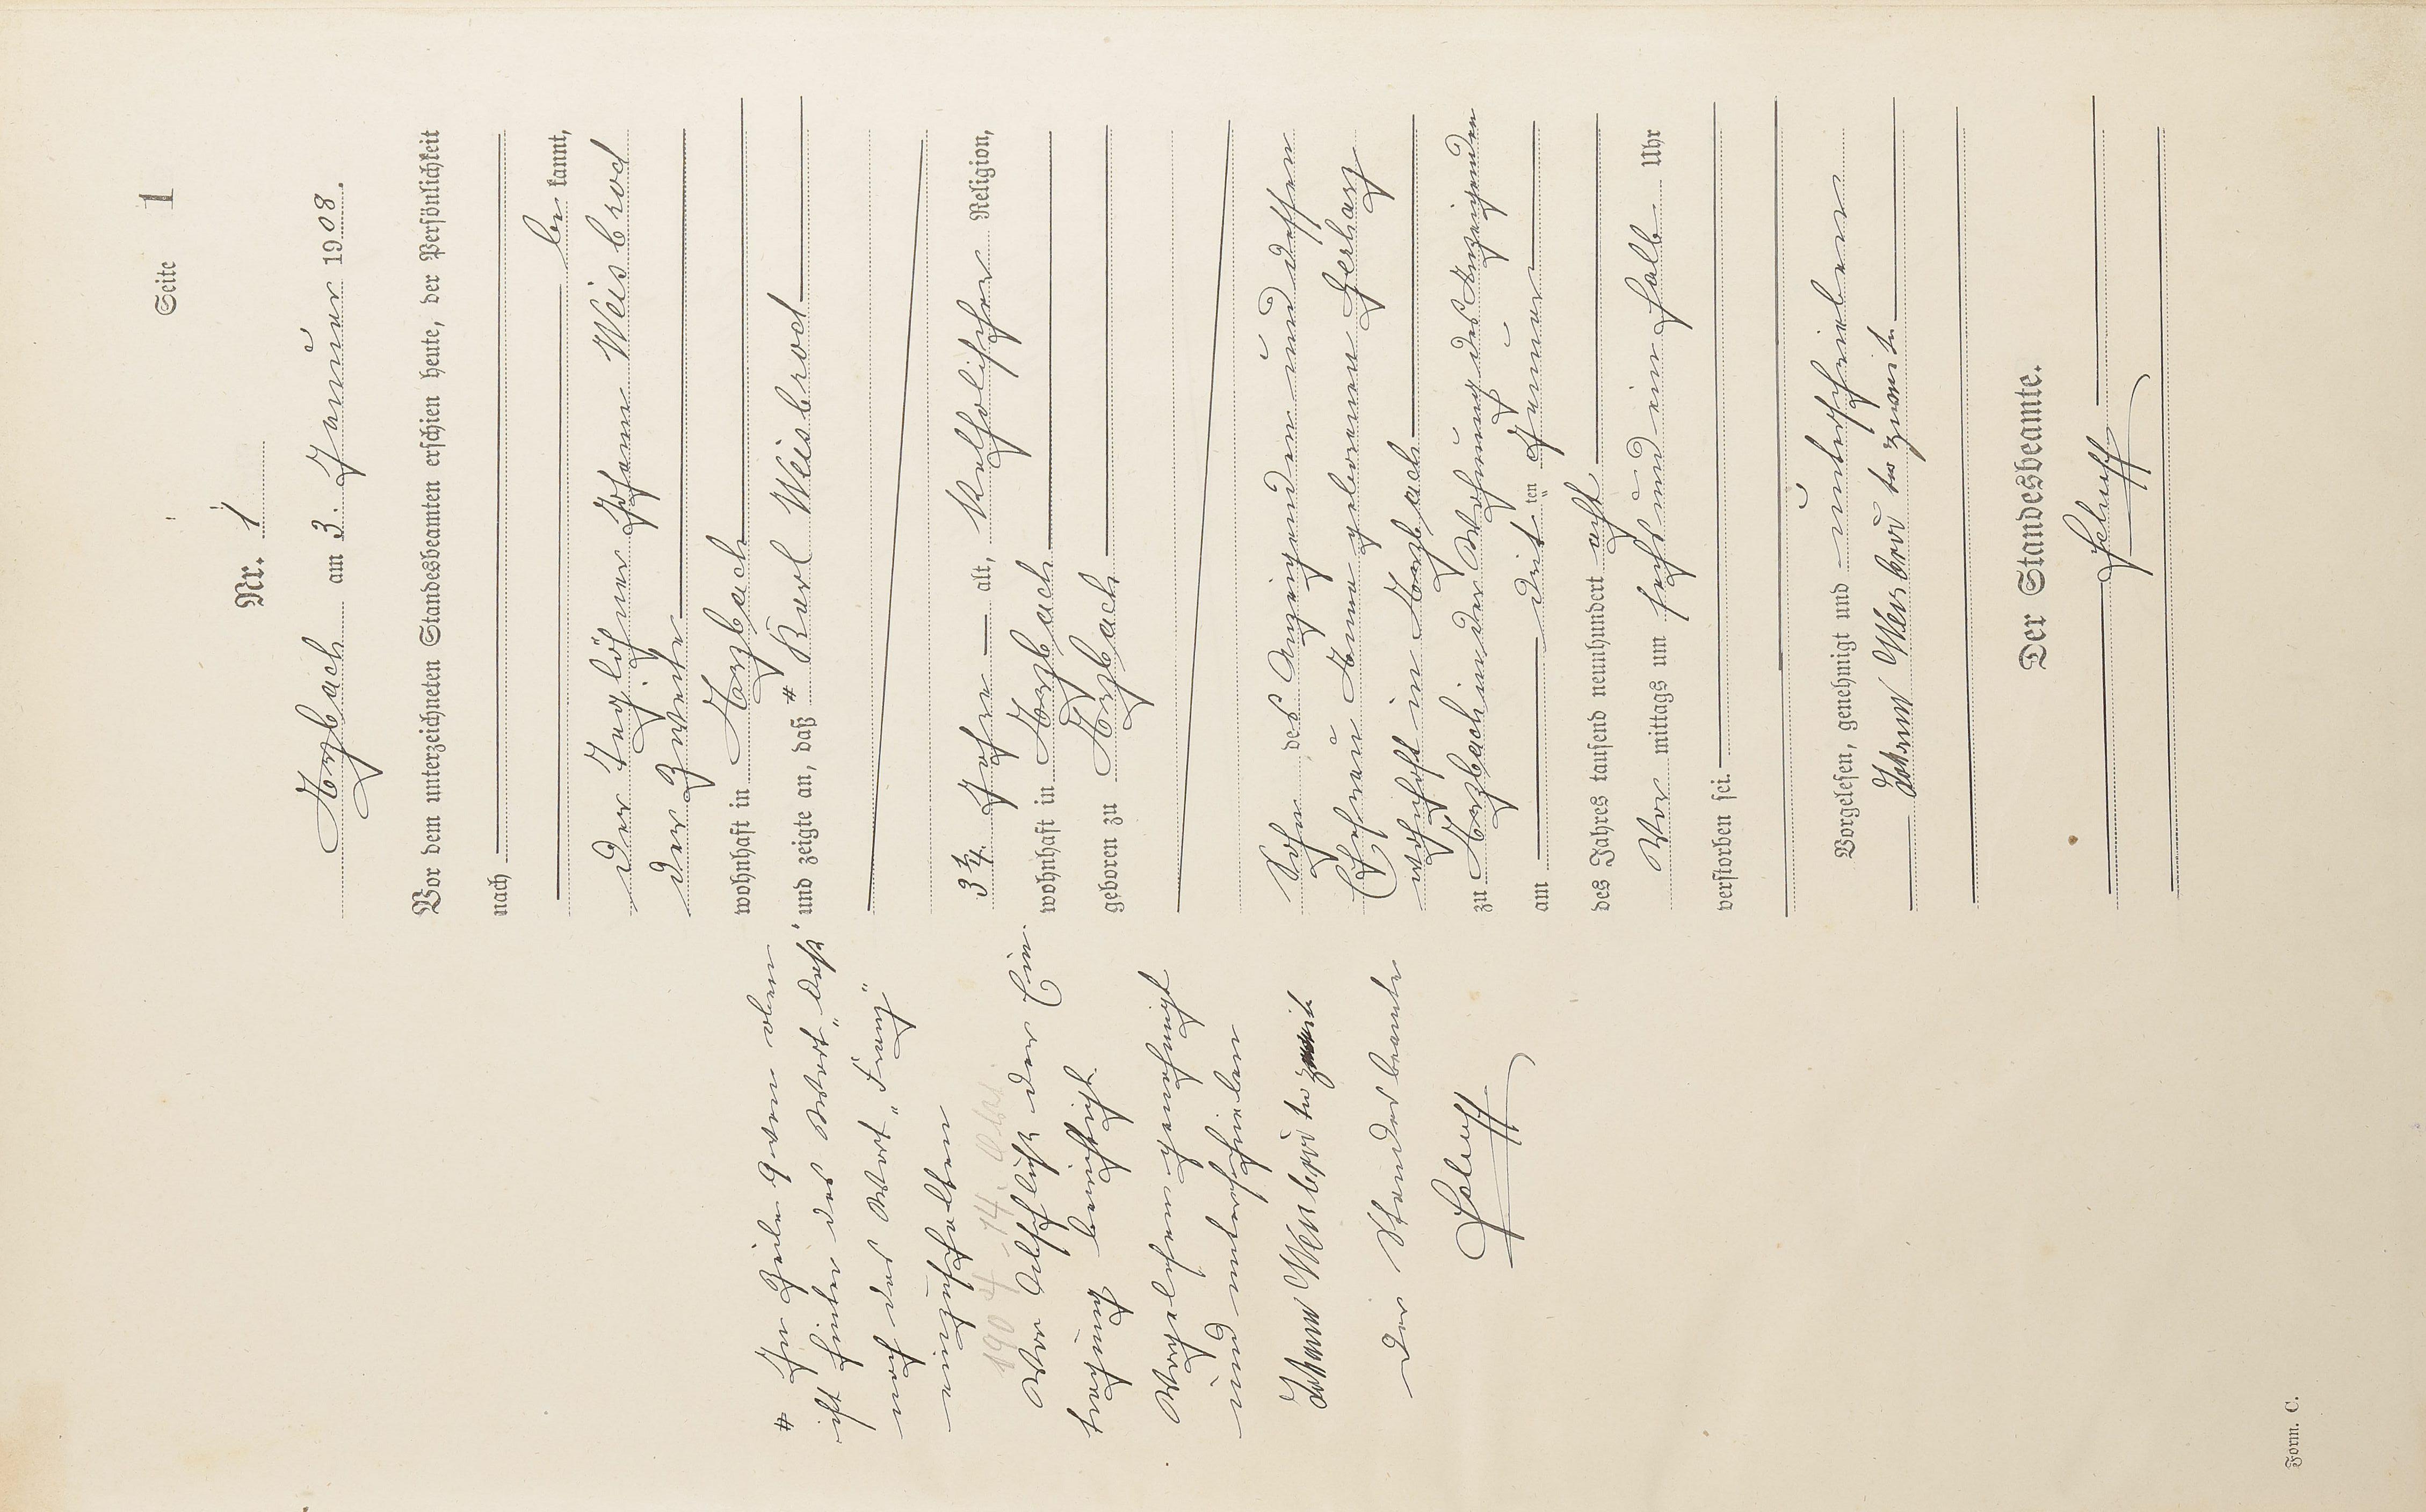 Seite 1
Nr. 1
Horbach am 3. Januar 1908.
Vor dem unterzeichneten Standesbeamten erschien heute, der Persönlichkeit
nach
be kannt,
der Taglöhner Johann Weisbrod
der Zweite
wohnhaft in Horbach
und zeigte an, daß # Karl Weisbrod
3 3/4 Jahre alt, Katholischer Religion,
wohnhaft in Horbach
geboren zu Horbach
Sohn des Anzeigenden und dessen
Ehefrau Anna geborenen Gerhart
wohnhaft in Horbach
zu Horbach in der Wohnung des Anzeigenden
am dritten Januar
des Jahres tausend neunhundert acht
Vor mittags um sechs und ein halb Uhr
verstorben sei.
Vorgelesen, genehmigt und unterschrieben
Johann Weisbrod der zweite
Der Standesbeamte.
# In Zeile 9 von oben
ist hinter das Wort „daß“
noch das Wort „Franz“
einzuschalten
1904 14.
Vor Abschluß der Ein
tragung berichtigt
Vorgelesen genehmigt
und unterschrieben
Johann Weisbrod der zweite
Der Standesbeamte
Form. C.